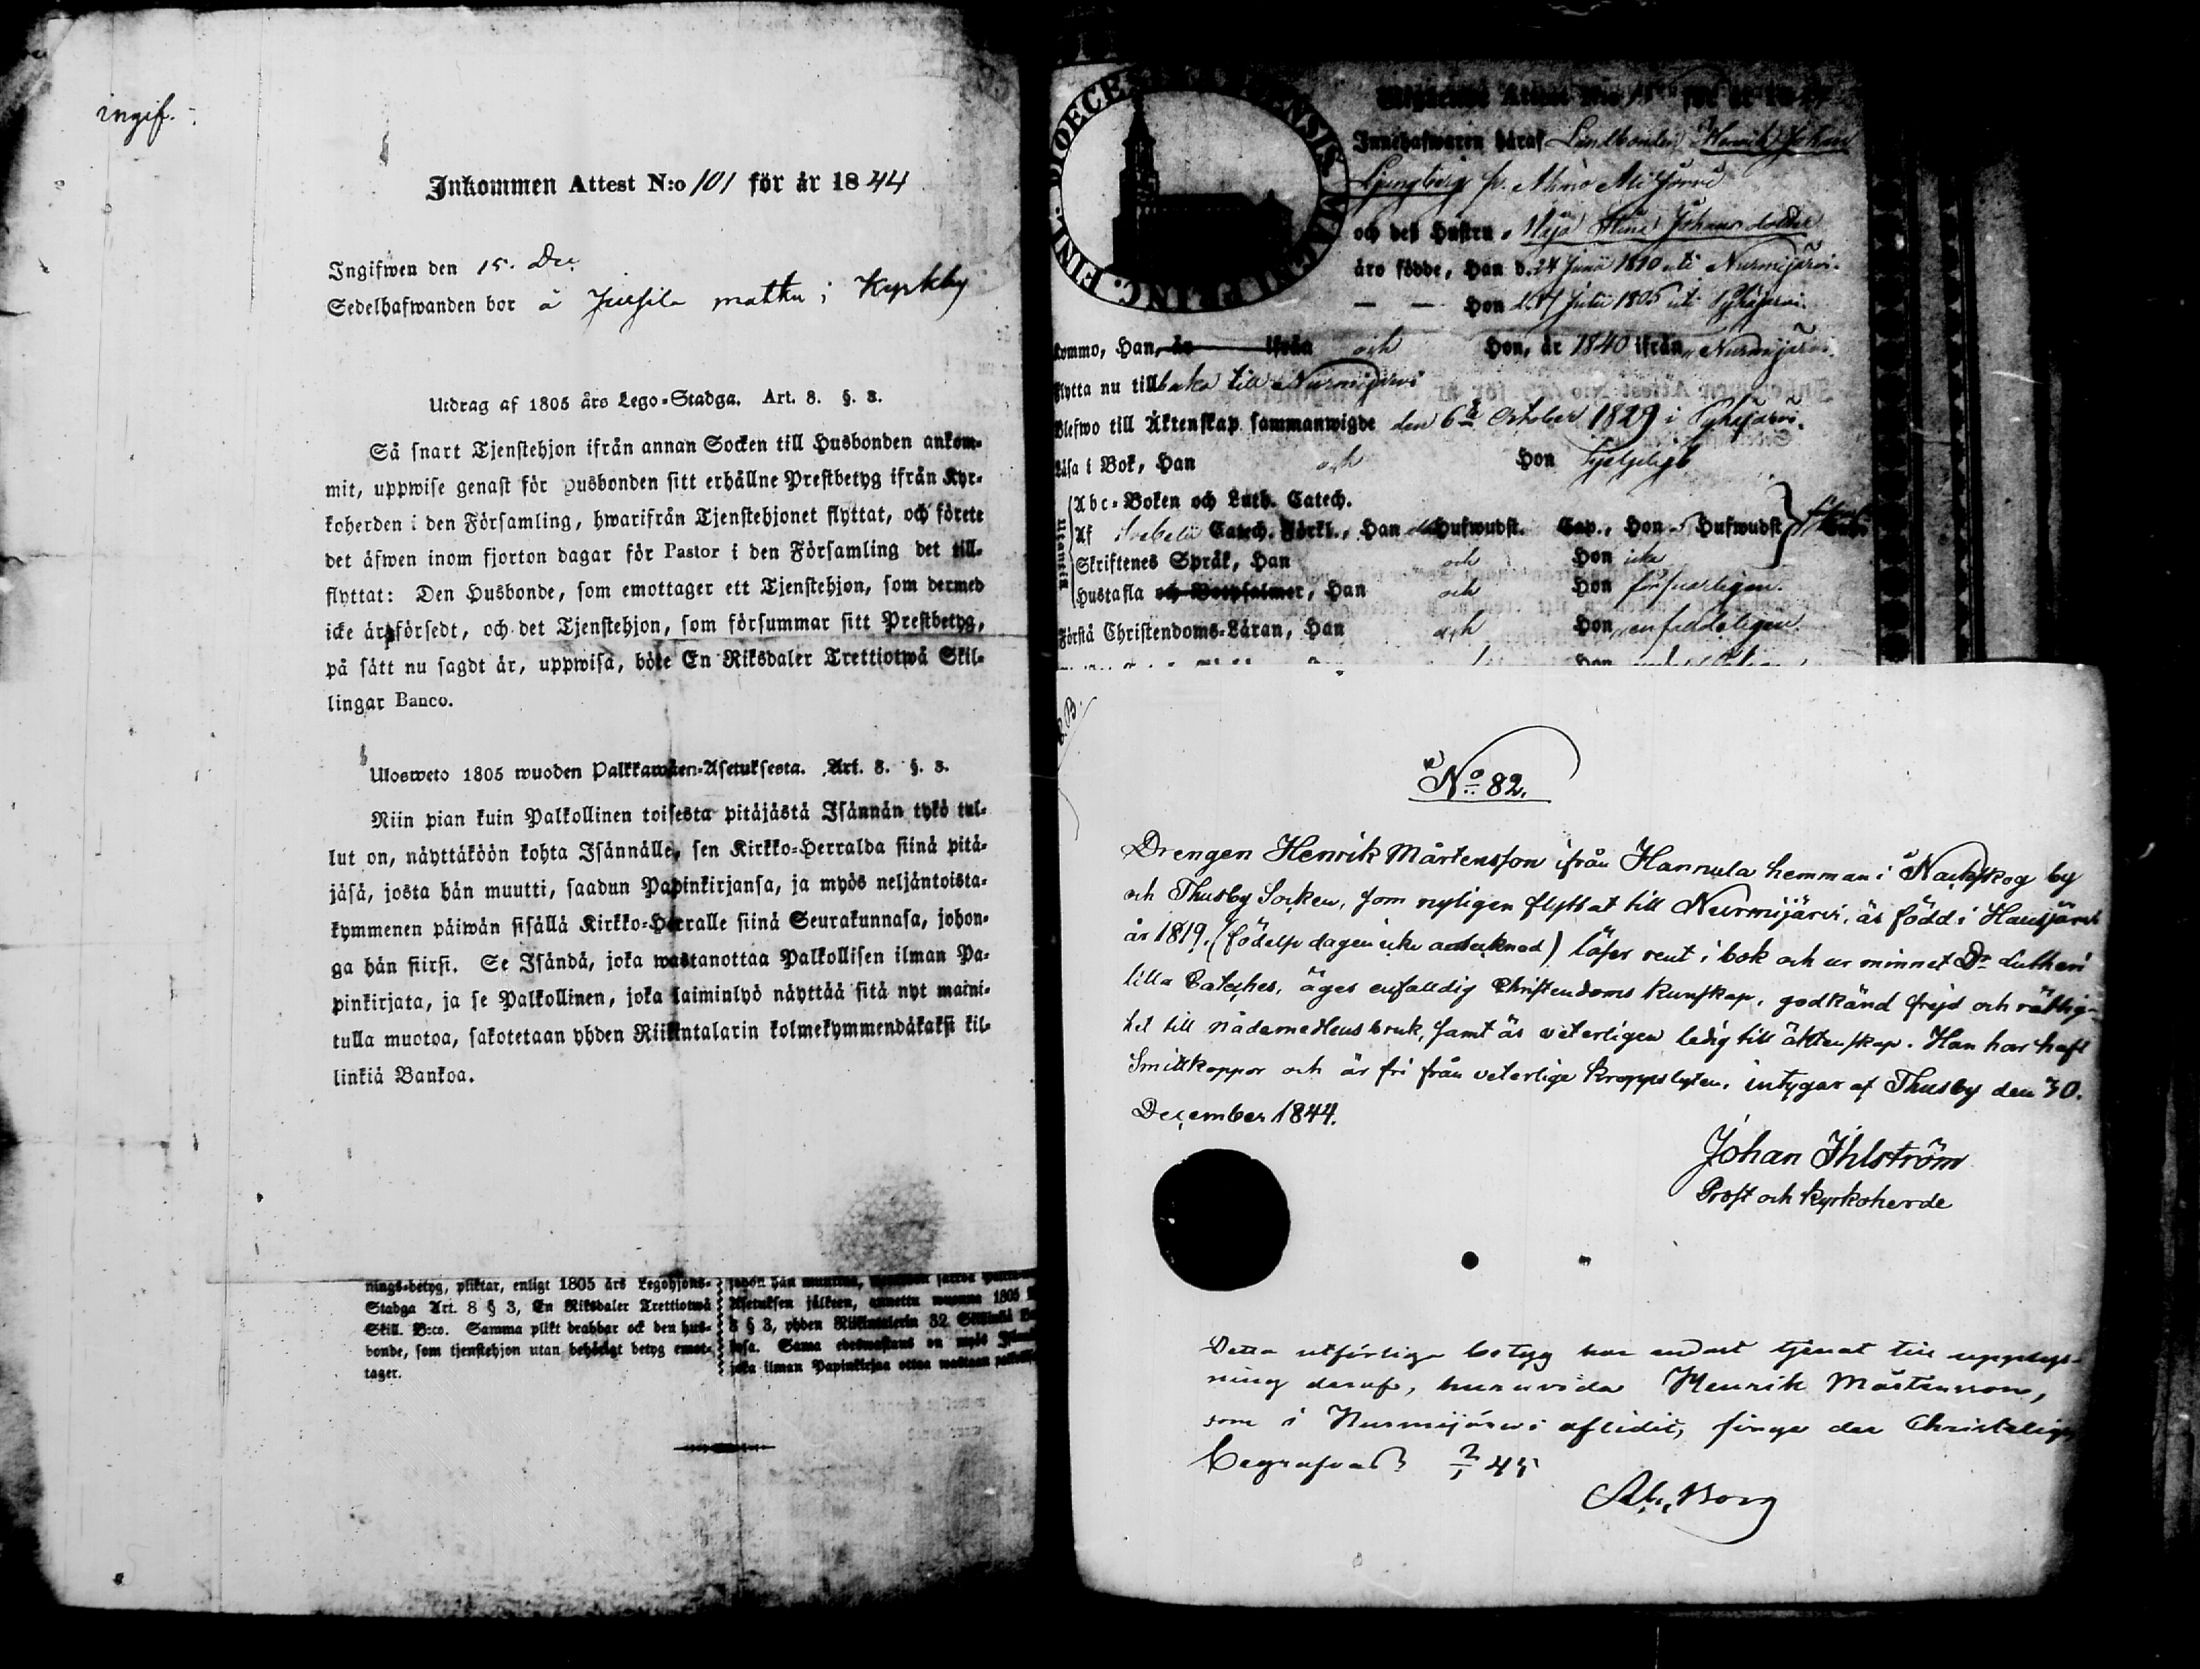 ingif.
Inkommen Attest N:o 101 för år 1844
Ingifwen den 15. Dec
Sedelhafwanden bor å Jussila mattu i Kyrkby
Utdrag af 1805 års Lego-Stadga. Art. 8. §. 3.
Så snart Tjenstehjon ifrån annan Socken till Husbonden ankom-
mit, uppwise genast för Husbonden sitt erhållne Prestbetyg ifrån Kyr-
koherden i den Församling, hwarifrån Tjenstehjonet flyttat, och förete
det äfwen inom fjorton dagar för Pastor i den Församling det till-
flyttat: Den Husbonde, som emottager ett Tjenstehjon, som dermed
icke är försedt, och det Tjenstehjon, som försummar sitt Prestbetyg,
på sätt nu sagdt är, uppwisa, böte En Riksdaler Trettiotwå Skil-
lingar Banco.
Ulosweto 1805 wuoden Palkkawäen-Asetuksesta. Art. 8. §. 3.
Niin pian kuin Palkollinen toisesta pitäjästä Isännän tykö tul-
lut on, näyttäköön kohta Isännälle, sen Kirkko-Herralda siinä pitä-
jäsä, josta hän muutti, saadun Papinkirjansa, ja myös neljäntoista-
kymmenen päiwän sisällä Kirkko-Herralle siinä Seurakunnasa, johon-
ga hän siirsi. Se Isändä, joka wastanottaa Palkollisen ilman Pa-
pinkirjata, ja se Palkollinen, joka laiminlyö näyttää sitä nyt maini-
tulla muotoa, sakotetaan yhden Riikintalarin kolmekymmendäkaksi kil-
linkiä Bankoa.
nings-betyg, pliktar, enligt 1805 års Legohjons-
Stadga Art. 8 § 3, En Riksdaler Trettiotwå
Skill. B:co. Samma plikt drabbar ock den hus-
bonde, som tjenstehjon utan behörigt betyg emot-
tager.
johon hän muuttaa,
Asetuksen jälkeen, annettu wuonna 1805
8 § 3, yhden Riikintalerin 32 Skillinkiä
Sama edeswastaus on myös
joka ilman Papinkirjaa ottaa wastaan
DIOECES FINL.
Attest N:o för år 18
Innehafwaren häraf Landbonden Henrik Johan
Ljungberg fr.
och des Hustru Maja Stina Johansdotter
äro födde, Han d. 24 Junii 1810 uti Nurmijärvi.
— — Hon d. Julii 1805 uti Pyhäjärvi.
kommo, Han, år ifrån och Hon, år 1840 ifrån Nurmijärvi
flytta nu tillbaka till Nurmijärvi
blefwo till Äktenskap sammanwigde den 6te October 1829 i Pyhäjärvi.
Läsa i Bok, Han och Hon hjelpligt
Utantill
Abc-Boken och Luth. Catech.
Af Svebelii Catech. Förkl., Han Hufwudst. Cap., Hon 5 Hufwudst
Skriftenes Språk, Han och Hon icke
Hustafla och Botpsalmer, Han och Hon försvarligen.
Förstå Christendoms-Läran, Han och Hon enfaldeligen
No 82.
Drengen Henrik Mårtensson ifrån Hannula hemman i Nackskog by
och Thusby Socken, som nyligen flyttat till Nurmijärvi, är född i Hausjärvi
år 1819. (födelse dagen icke antecknad) läser rent i bok och ur minnet Dr Lutheri
lilla Cateches, äger enfalldig Christendoms kunskap, godkänd frejd och rättig-
het till nådemedlens bruk, samt är veterligen ledig till äktenskap. Han har haft
Smittkoppor och är fri från veterlige kroppslyten, intygar af Thusby den 30.
December 1844.
Johan Ihlström
Prost och Kyrkoherde
Detta utförliga betyg har endast tjenat till upplys-
ning deraf, huruvida Henrik Mårtensson,
som i Nurmijärvi aflidit, finge der Christeligen
begrafvas? 2/1 45
Ab. Borg